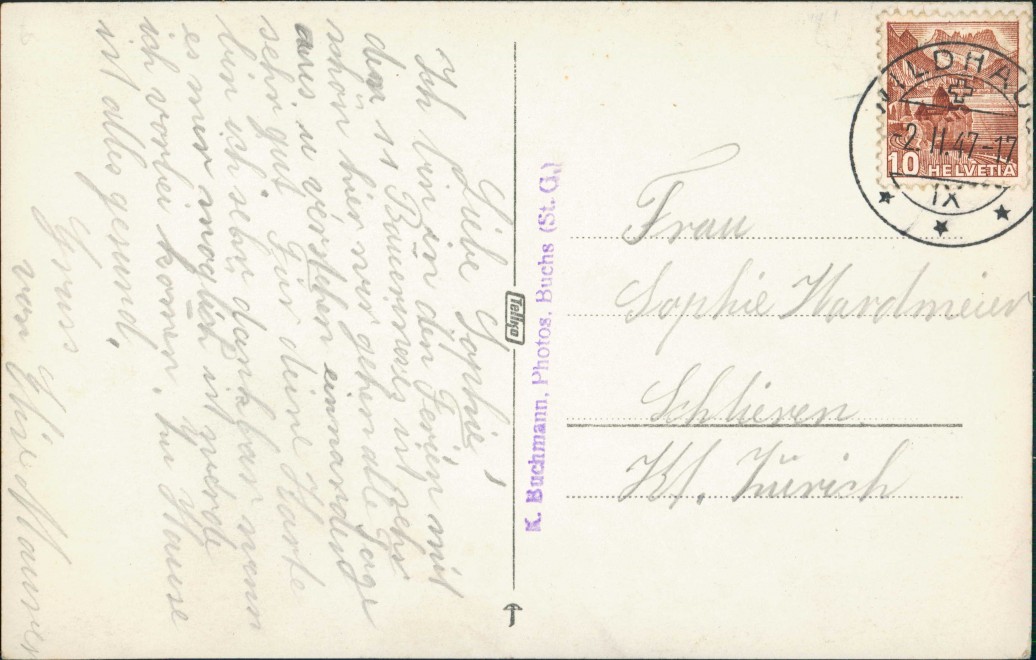 Liebe Sophie!
Ich bin in den Ferien mit
den ss Bäuerinnes ist sehr
schön hier wir gehen alle Tage
aus. u verstehen einnander
sehr gut. Für deine Karte
bin ich sehr dankbar wenn
es mir möglich ist werde
ich vorbei komen. zu Hause
ist alles gesund.
Gruss
von Ihre Maurer
K. Buchmann, Photos, Buchs (St. G.)
Tellko
WILDHAUS
-2.II.47-17
IX
10 HELVETIA
Frau
Sophie Hardmeier
Schlieren.
Kt. Zürich